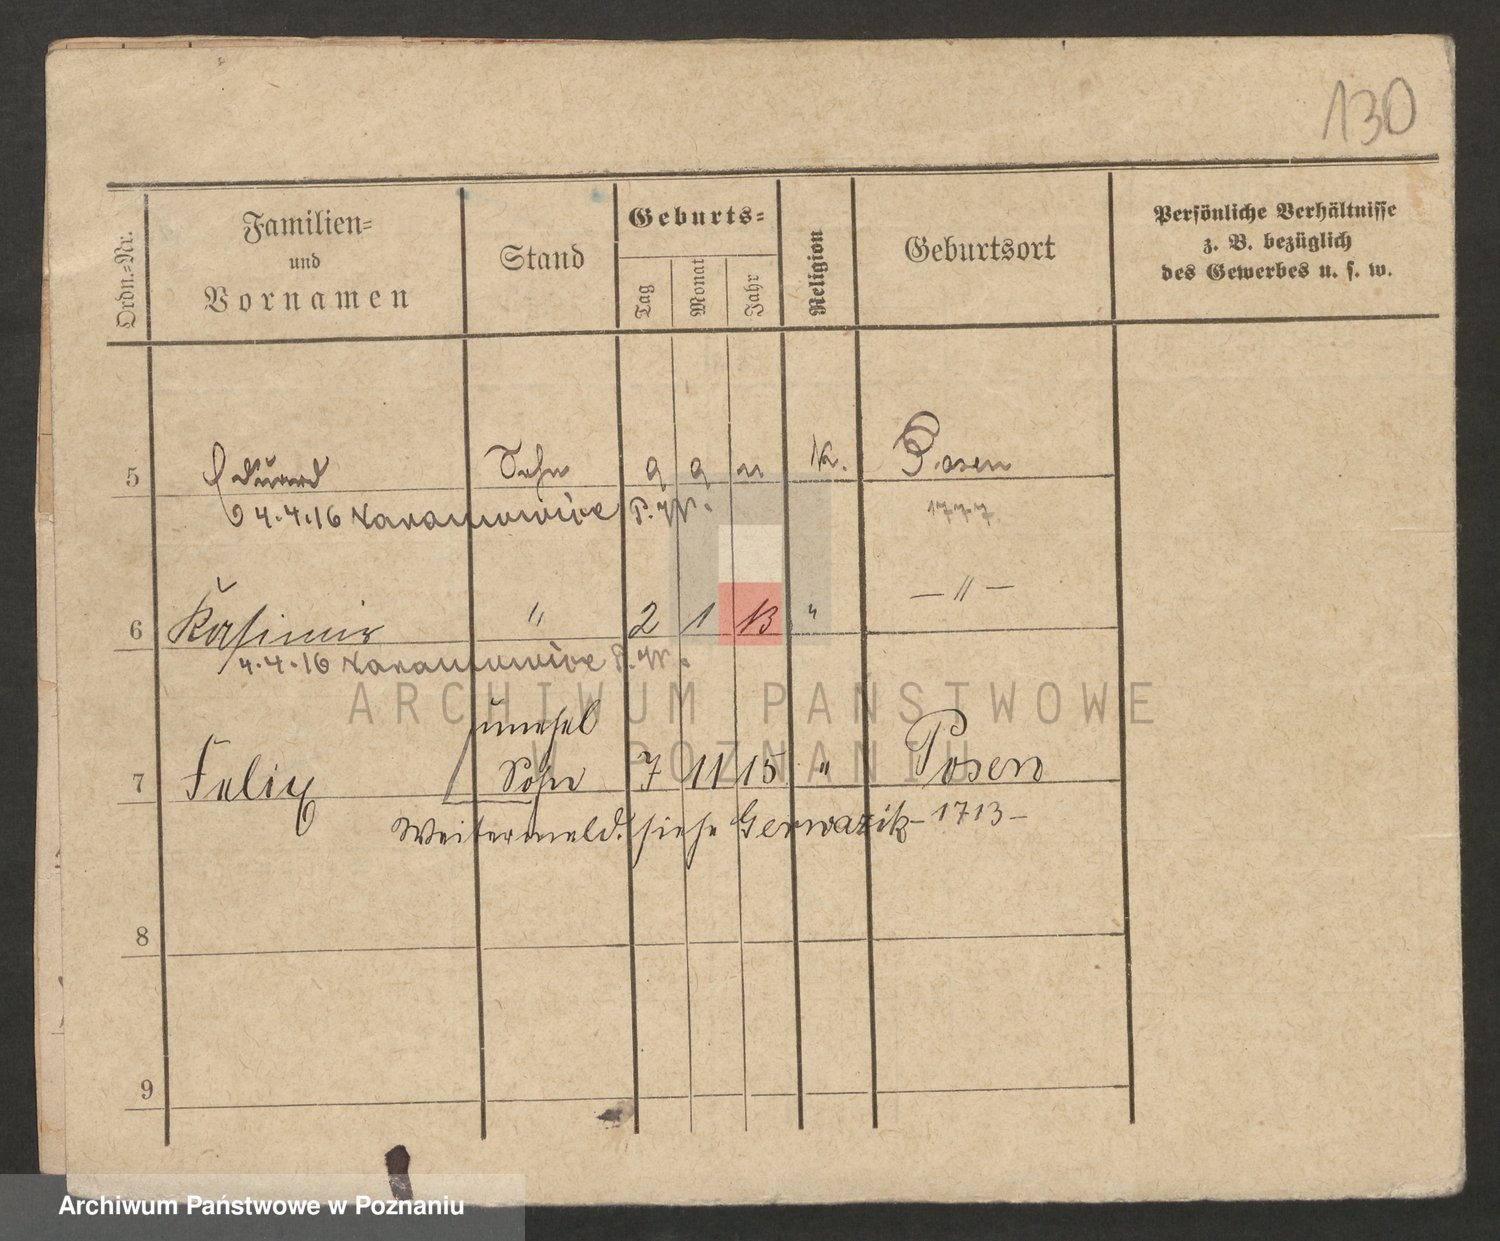 130
Ordn.=Nr.
Familien=
und
Vornamen
Stand
Geburts=
Tag
Monat
Jahr
Religion
Geburtsort
Persönliche Verhältnisse
z. B. bezüglich
des Gewerbes u. s. w.
5 Eduard Sohn 9 9 11 K. Posen
4.4.16 P.
1777
6 Kasimir " 2 1 13 " — " —
4.4.16 P.
7 Felix unehel
Sohn 7 11 15 " Posen
Weitermeld. siehe Gerwazik - 1713 -
8
9
ARCHIWUM PAŃSTWOWE
W POZNANIU
Archiwum Państwowe w Poznaniu